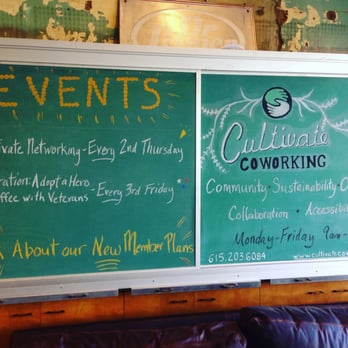 EVENTS
Networking - Every 2nd Thursday
Adopt a Hero
with Veterans - Every 3rd Friday
About our New Member Plans
Cultivate
COWORKING
Community · Sustainability ·
Collaboration ·
Monday-Friday 9am-
615.203.6084